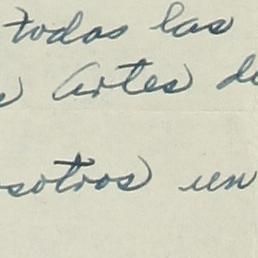 todas las
s Artes de
osotros un